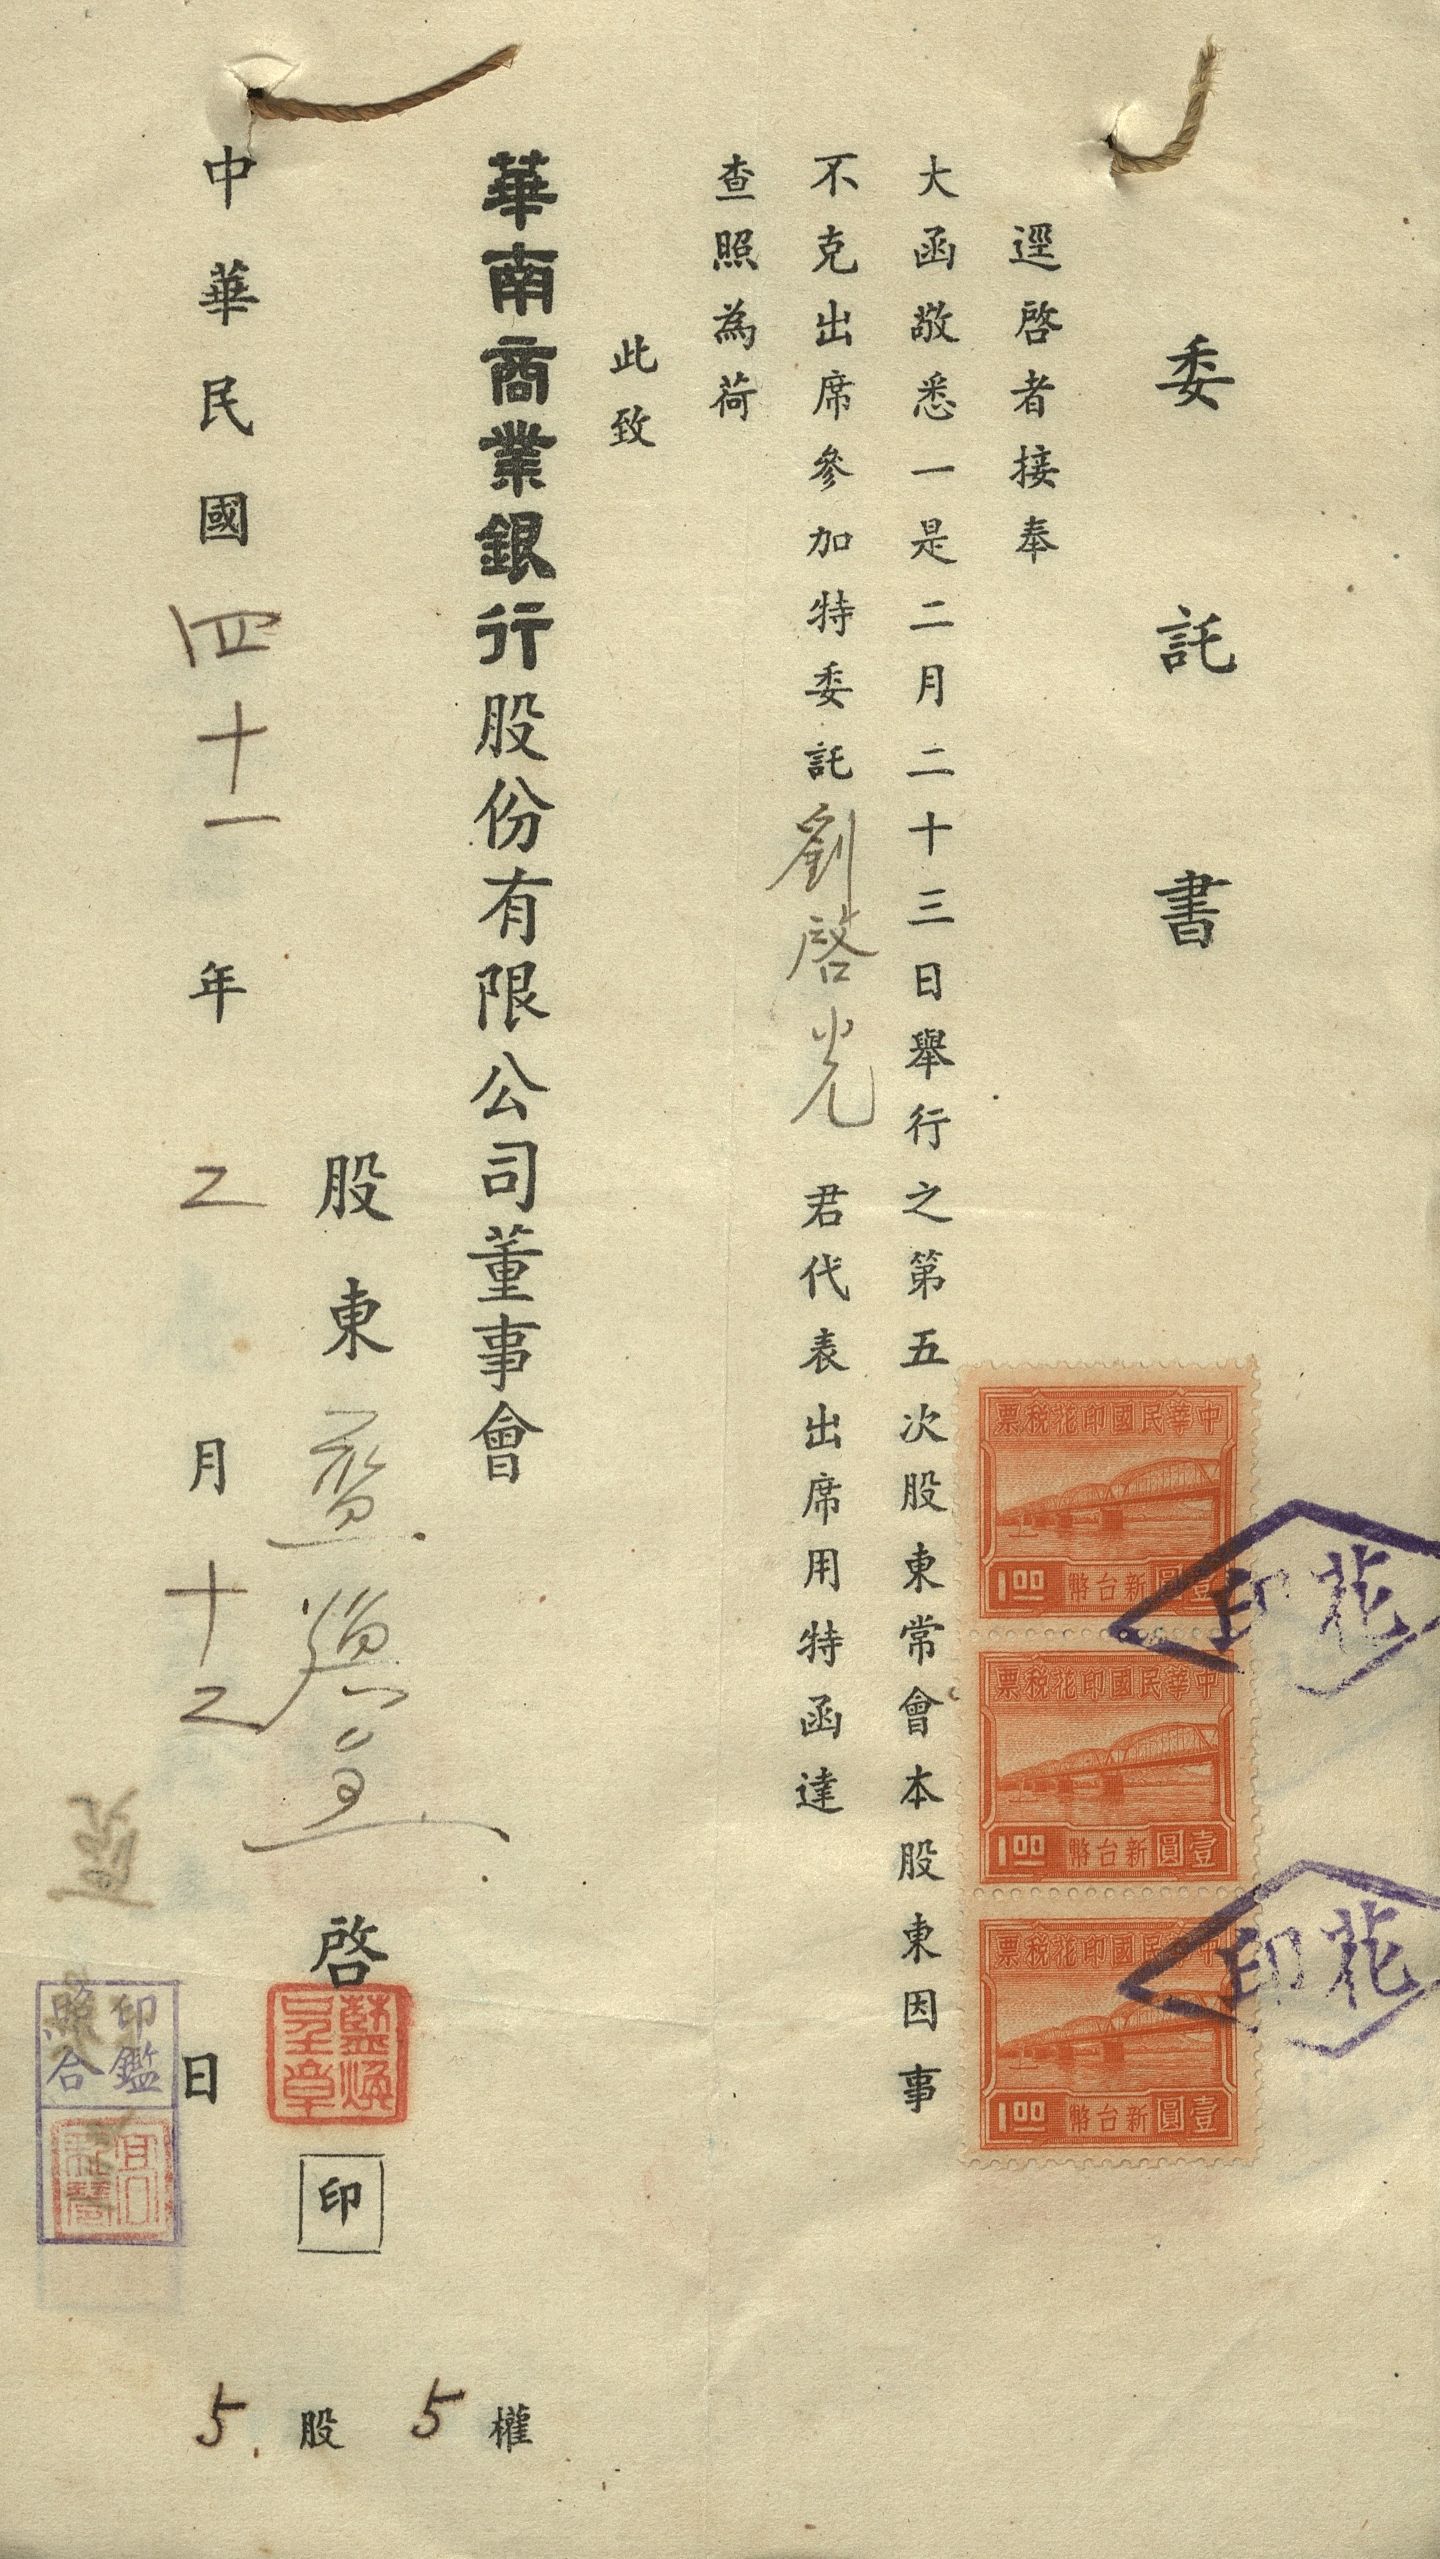 委託書
逕啓者接奉
大函敬悉一是二月二十三日舉行之第五次股東常會本股東因事
不克出席參加特委託劉啓光君代表出席用特函達
查照為荷
此致
華南商業銀行股份有限公司董事會
股東藍煥呈啓
藍煥呈章
印
中華民國四十一年二月十二日
5股5權
印鑑
照合
中華民國印花稅票
1.00 新台幣壹圓
中華民國印花稅票
1.00 新台幣壹圓
中華民國印花稅票
1.00 新台幣壹圓
印花
印花